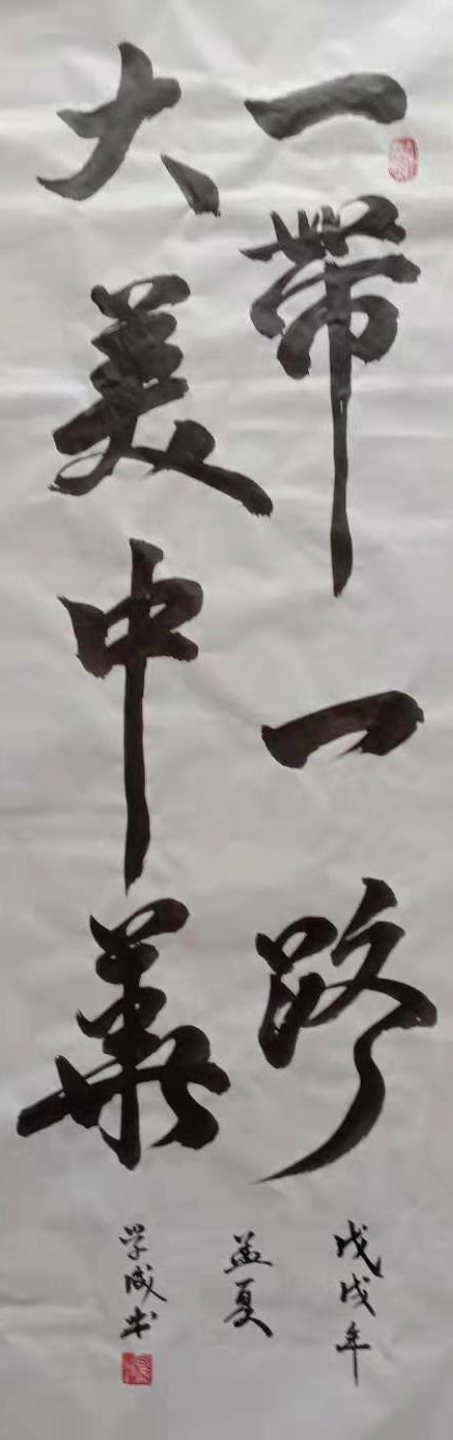 一带一路
大美中华
戊戌年
孟夏
学成书